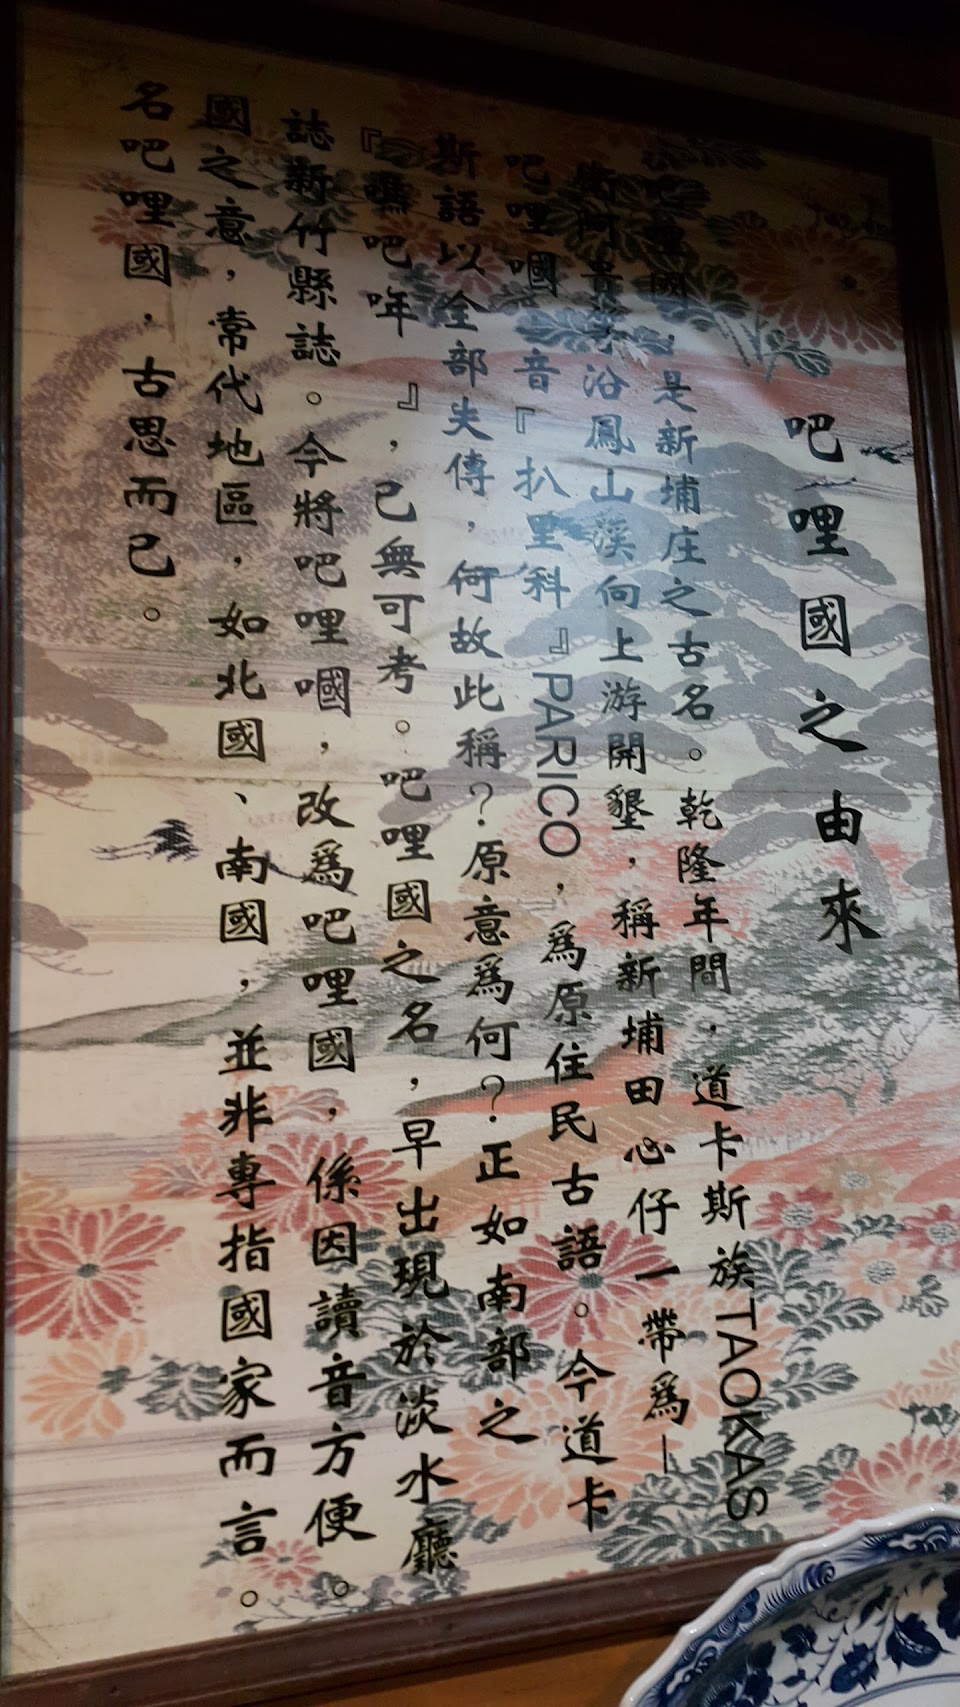 吧哩國之由來
吧哩國,是新埔庄之古名。乾隆年間,道卡斯族TAOKAS
沿鳳山溪向上游開墾,稱新埔田心仔一帶為—
吧哩嘓音『扒里科』PARICO,為原住民古語。今道卡
斯語以全部失傳,何故此稱?原意為何?正如南部之
『噍吧哖』,已無可考。吧哩國之名,早出現於淡水廳
誌新竹縣誌。今將吧哩嘓,改為吧哩國,係因讀音方便。
國之意,常代地區,如北國、南國,並非專指國家而言。
名吧哩國,古思而已。